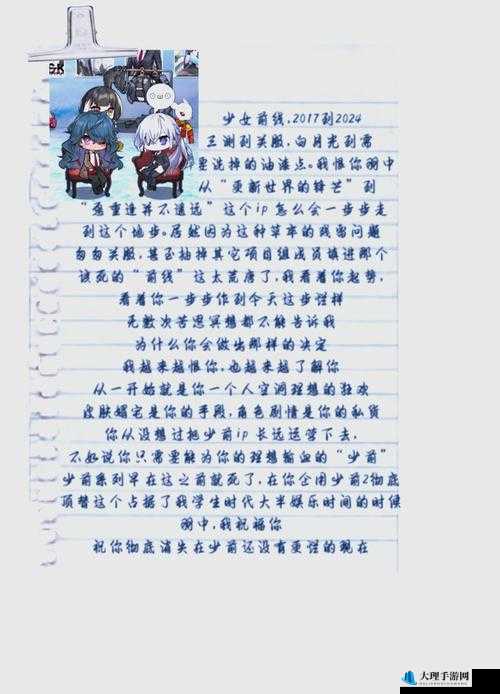 少女前线,2017到2024
三测到关服,白月光到需
要洗掉的油渍点。我恨你羽中
从“更新世界的锋芒”到
“重造并不遥远”这个ip怎么会一步步走
到这个地步。居然因为这种草率的残害问题
匆匆关服,甚至抽掉其它项目组成员填进那个
该死的“前线”这太荒唐了,我看着你起势,
看着你一步步作到今天这步烂样
无数次苦思冥想都不能告诉我
为什么你会做出那样的决定
我越来越恨你,也越来越了解你
从一开始就是你一个人空洞理想的狂欢
皮肤媚宅是你的手段,角色剧情是你的私货
你从没想过把少前ip长远运营下去,
不如说你只需要能为你的理想输血的“少前”
少前系列早在这之前就死了,在你企图少前2彻底
顶替这个占据了我学生时代大半娱乐时间的时候
羽中,我祝福你
祝你彻底消失在少前还没有更烂的现在
大理手游网